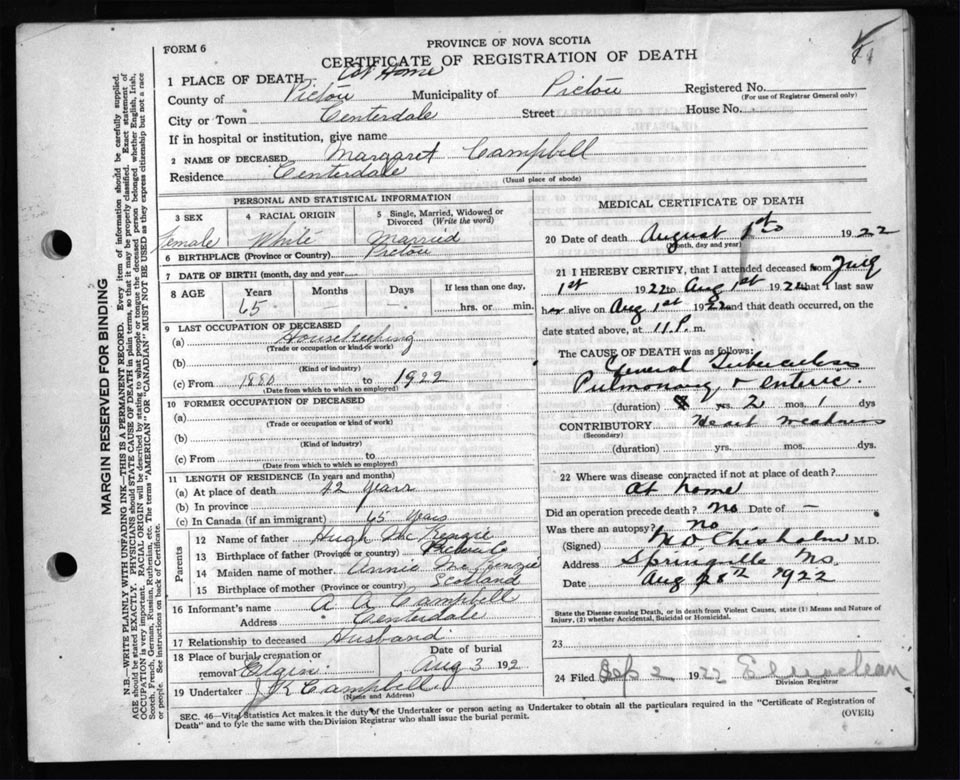 FORM 6
PROVINCE OF NOVA SCOTIA
CERTIFICATE OF REGISTRATION OF DEATH
1 PLACE OF DEATH At Home
County of Pictou Municipality of Pictou Registered No.
(For use of Registrar General only)
City or Town Centerdale Street House No.
If in hospital or institution, give name
2 NAME OF DECEASED Margaret Campbell
Residence Centerdale
(Usual place of abode)
PERSONAL AND STATISTICAL INFORMATION
3 SEX 4 RACIAL ORIGIN 5 Single, Married, Widowed or Divorced (Write the word)
Female White Married
6 BIRTHPLACE (Province or Country) Pictou
7 DATE OF BIRTH (month, day and year)
8 AGE Years Months Days If less than one day,
65 — — hrs. or min.
9 LAST OCCUPATION OF DECEASED
(a) Housekeeping
(Trade or occupation or kind of work)
(b)
(Kind of industry)
(c) From 1880 to 1922
(Date from which to which so employed)
10 FORMER OCCUPATION OF DECEASED
(a)
(Trade or occupation or kind of work)
(b)
(Kind of industry)
(c) From to
(Date from which to which so employed)
11 LENGTH OF RESIDENCE (In years and months)
(a) At place of death 42 years
(b) In province
(c) In Canada (if an immigrant) 65 years
Parents
12 Name of father Hugh McKenzie
13 Birthplace of father (Province or country)
14 Maiden name of mother Annie McKenzie
15 Birthplace of mother (Province or country) Scotland
16 Informant's name A A Campbell
Address Centerdale
17 Relationship to deceased Husband
18 Place of burial, cremation or removal Elgin Date of burial Aug 3 192
19 Undertaker J R Campbell
(Name and Address)
MEDICAL CERTIFICATE OF DEATH
20 Date of death August 1st 1922
(month, day and year)
21 I HEREBY CERTIFY, that I attended deceased from July
1st 1922 to Aug 1st 1922 that I last saw
her alive on Aug 1st 1922 and that death occurred, on the
date stated above, at 11 P. m.
The CAUSE OF DEATH was as follows:
General Tuberculosis
Pulmonary & enteric.
(duration) yrs. 2 mos. 1 dys
CONTRIBUTORY Heart weakness
(Secondary)
(duration) yrs. mos. dys.
22 Where was disease contracted if not at place of death?
At home
Did an operation precede death? No Date of —
Was there an autopsy? No
(Signed) M D Chisholm M.D.
Address Springville Ns.
Date Aug 28th 1922
State the Disease causing Death, or in death from Violent Causes, state (1) Means and Nature of Injury, (2) whether Accidental, Suicidal or Homicidal.
23
24 Filed Sep 2 1922
Division Registrar
SEC. 46—Vital Statistics Act makes it the duty of the Undertaker or person acting as Undertaker to obtain all the particulars required in the "Certificate of Registration of
Death" and to fyle the same with the Division Registrar who shall issue the burial permit.
(OVER)
MARGIN RESERVED FOR BINDING
N.B.—WRITE PLAINLY WITH UNFADING INK—THIS IS A PERMANENT RECORD. Every item of information should be carefully supplied.
AGE should be stated EXACTLY. PHYSICIANS should STATE CAUSE OF DEATH in plain terms, so that it may be properly classified. Exact statement of
OCCUPATION is very important. RACIAL ORIGIN will be described by stating to what people or tongue the deceased person belonged whether English, Irish,
Scotch, French, German, Russian, Ruthenian, etc. The terms "AMERICAN" or "CANADIAN" MUST NOT BE USED as they express citizenship but not a race
or people. See instructions on back of Certificate.